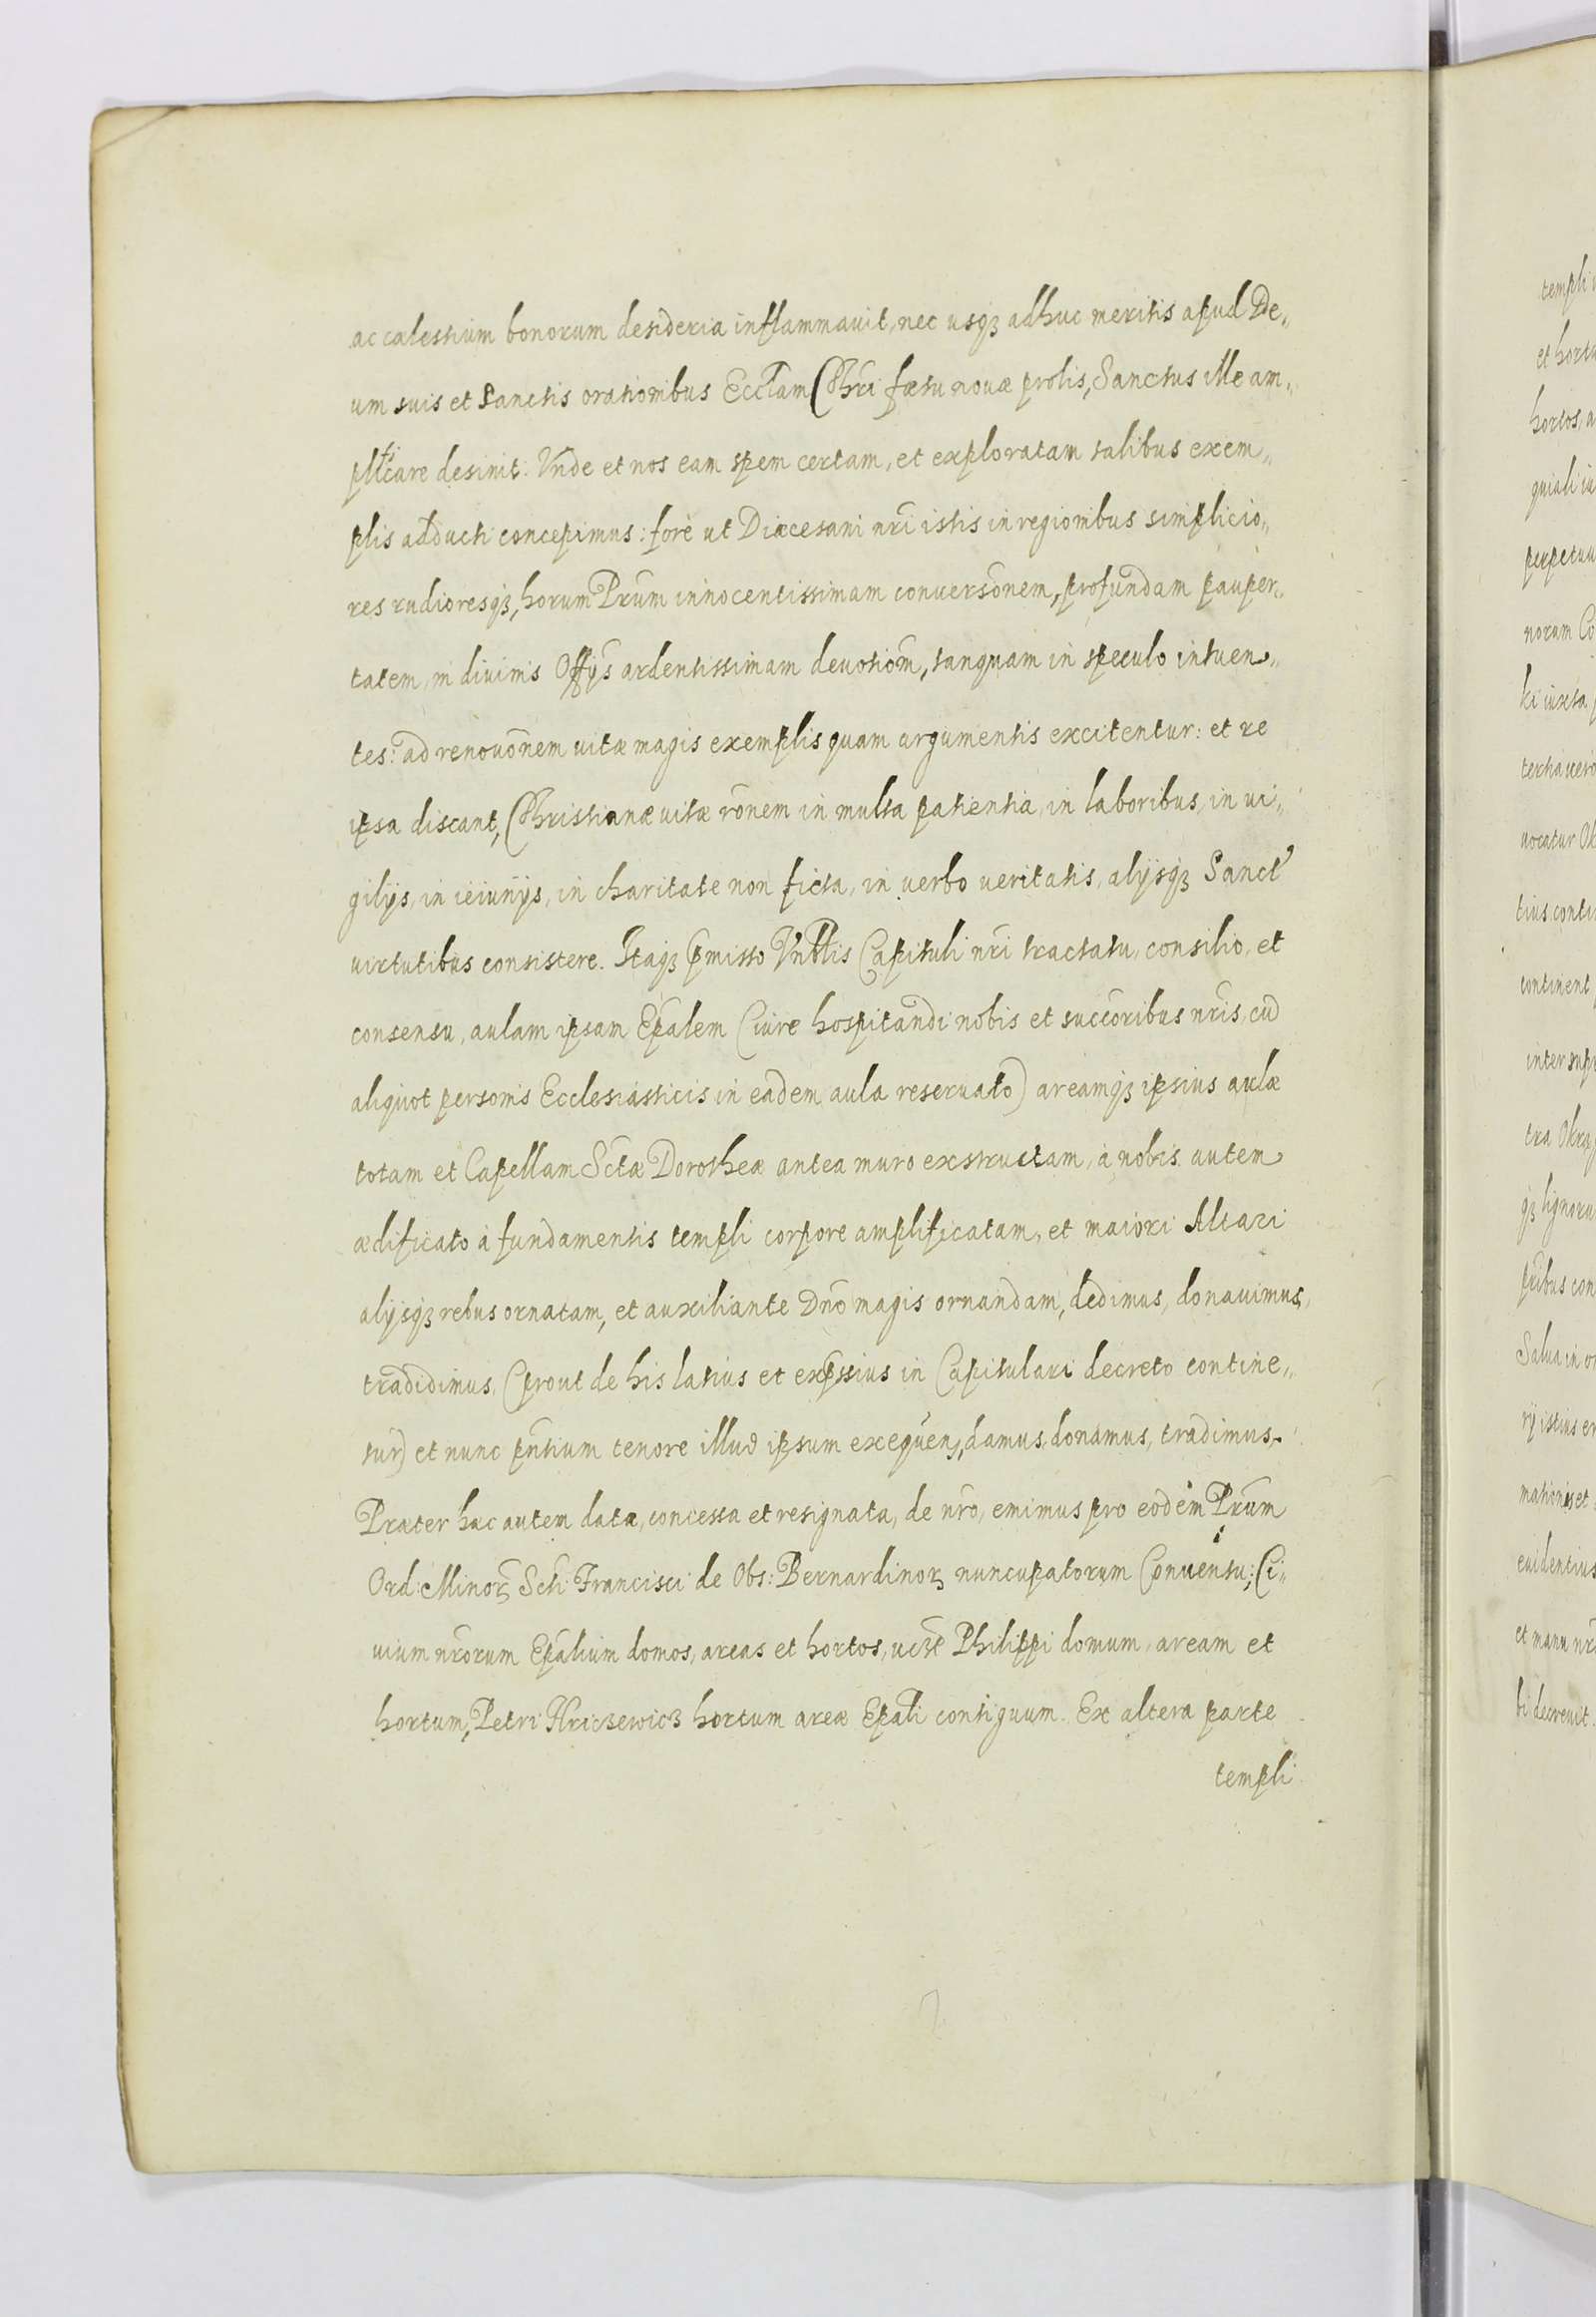 ac cælestium bonorum desideria inflammauit, nec usq3 adhuc meritis apud De„
um suis et Sanctis orationibus Eccl̃am Chr̃i fætu nouæ prolis, Sanctus ille am„
pl̃icare desinit. Vnde et nos eam spem certam, et exploratam talibus exem„
plis adducti concepimus: fore ut Diæcesani nr̃i istis in regionibus simplicio„
res rudioresq3, horum Pr̃um innocentissimam conuersõnem, profundam pauper„
tatem, in diuinis Offijs ardentissimam deuotiõm, tanquam in speculo intuen„
tes: ad renouõnem uitæ magis exemplis quam argumentis excitentur: et re
ipsa discant, Christianæ uitæ rõnem in multa patientia, in laboribus, in ui„
gilijs, in ieiunijs, in charitate non ficta, in uerbo ueritatis, alijsq3 Sanct
uirtutibus consistere. Itaq3 p̃misso Vnblis Capituli nr̃i tractatu, consilio, et
consensu, aulam ipsam Ep̃alem (iure hospitandi nobis et succõribus nr̃is, cũ
aliquot personis Ecclesiasticis in eadem aula reseruato) areamq3 ipsius aulæ
totam et Capellam Sctæ Dorotheæ antea muro exstructam, à nobis autem
ædificato à fundamentis templi corpore amplificatam, et maiori Altari
alijsq3 rebus ornatam, et auxiliante Dñо magis ornandam, dedimus, donauimus,
tradidimus, (prout de his latius et exp̃ssius in Capitulari decreto contine„
tur) et nunc pñtium tenore illud ipsum exequeñ, damus, donamus, tradimus.
Præter hæc autem data, concessa et resignata, de nr̃o, emimus pro eodem Pr̃um
Ord: Minoꝝ Scti Francisci de Obs: Bernardinoꝝ nuncupatorum Conuentu: Ci„
uium nr̃orum Ep̃alium domos, areas et hortos, uc̃lt Philippi domum, aream et
hortum, Petri Hricsewic3 hortum areæ Ep̃ali contiguum. Ex altera parte
templi
templi
et horta
hortos, a
quiali iu
perpetuu
norum Co
ki iuxta
tertia uero
uocatur Ok
tius conti
continent
inter sup
tra Okra
q3 lignoru
pr̃ibus con
Salua in o
rij istius er
mationis et
euidentius
et manu nr̃
bi decreuit.